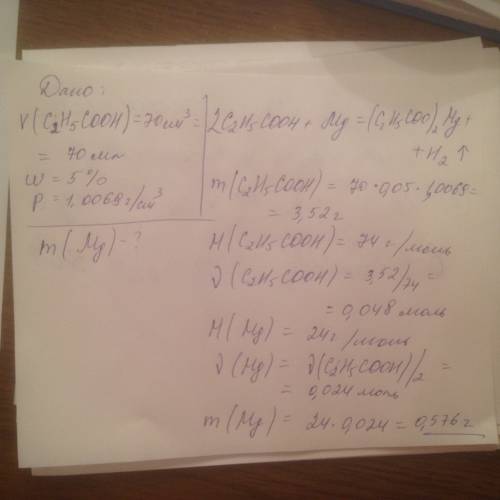 Дано:
V(C2H5COOH)=70см³=
= 70 мл
W = 5%
P = 1,0069г/см³
m(Mg)-?
2C2H5COOH + Mg = (C2H5COO)2Mg +
+ H2 ↑
m(C2H5COOH) = 70·0,05·1,0069=
= 3,52г
M(C2H5COOH) = 74 г/моль
ν(C2H5COOH) = 3,52/74 =
= 0,048 моль
M(Mg) = 24г/моль
ν(Mg) = ν(C2H5COOH)/2 =
= 0,024 моль
m(Mg) = 24·0,024 = 0,576 г